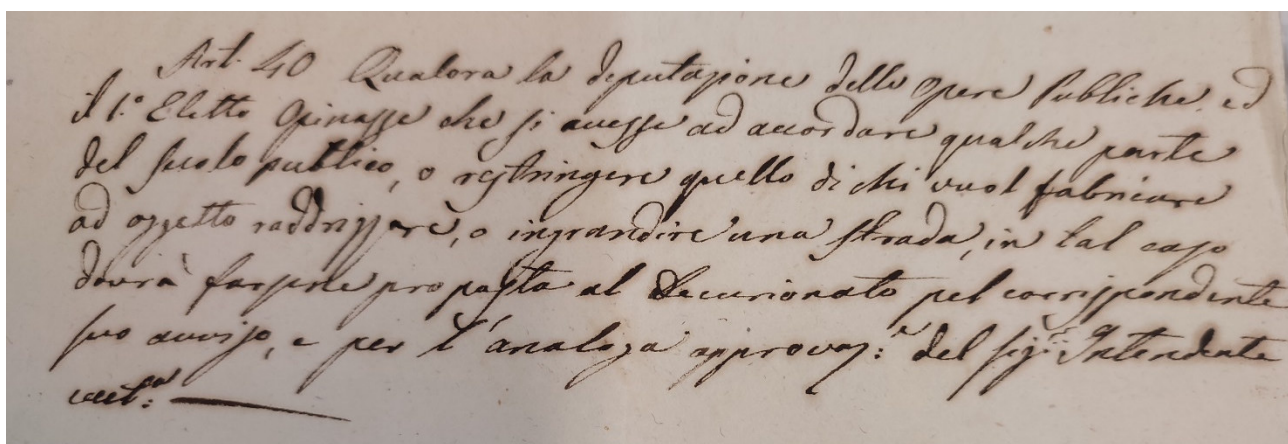 Art. 40 Qualora la deputazione delle opere Publiche, ed
il 1.° Eletto opinasse che si avesse ad accordare qualche parte
del suolo publico, o restringere quello di chi vuol fabricare
ad oggetto raddrizzare, o ingrandire una strada, in tal caso
dovrà farsene proposta al Decurionato pel corrispondente
suo avviso, e per l'analoga approvaz:e del sig:r Intendente